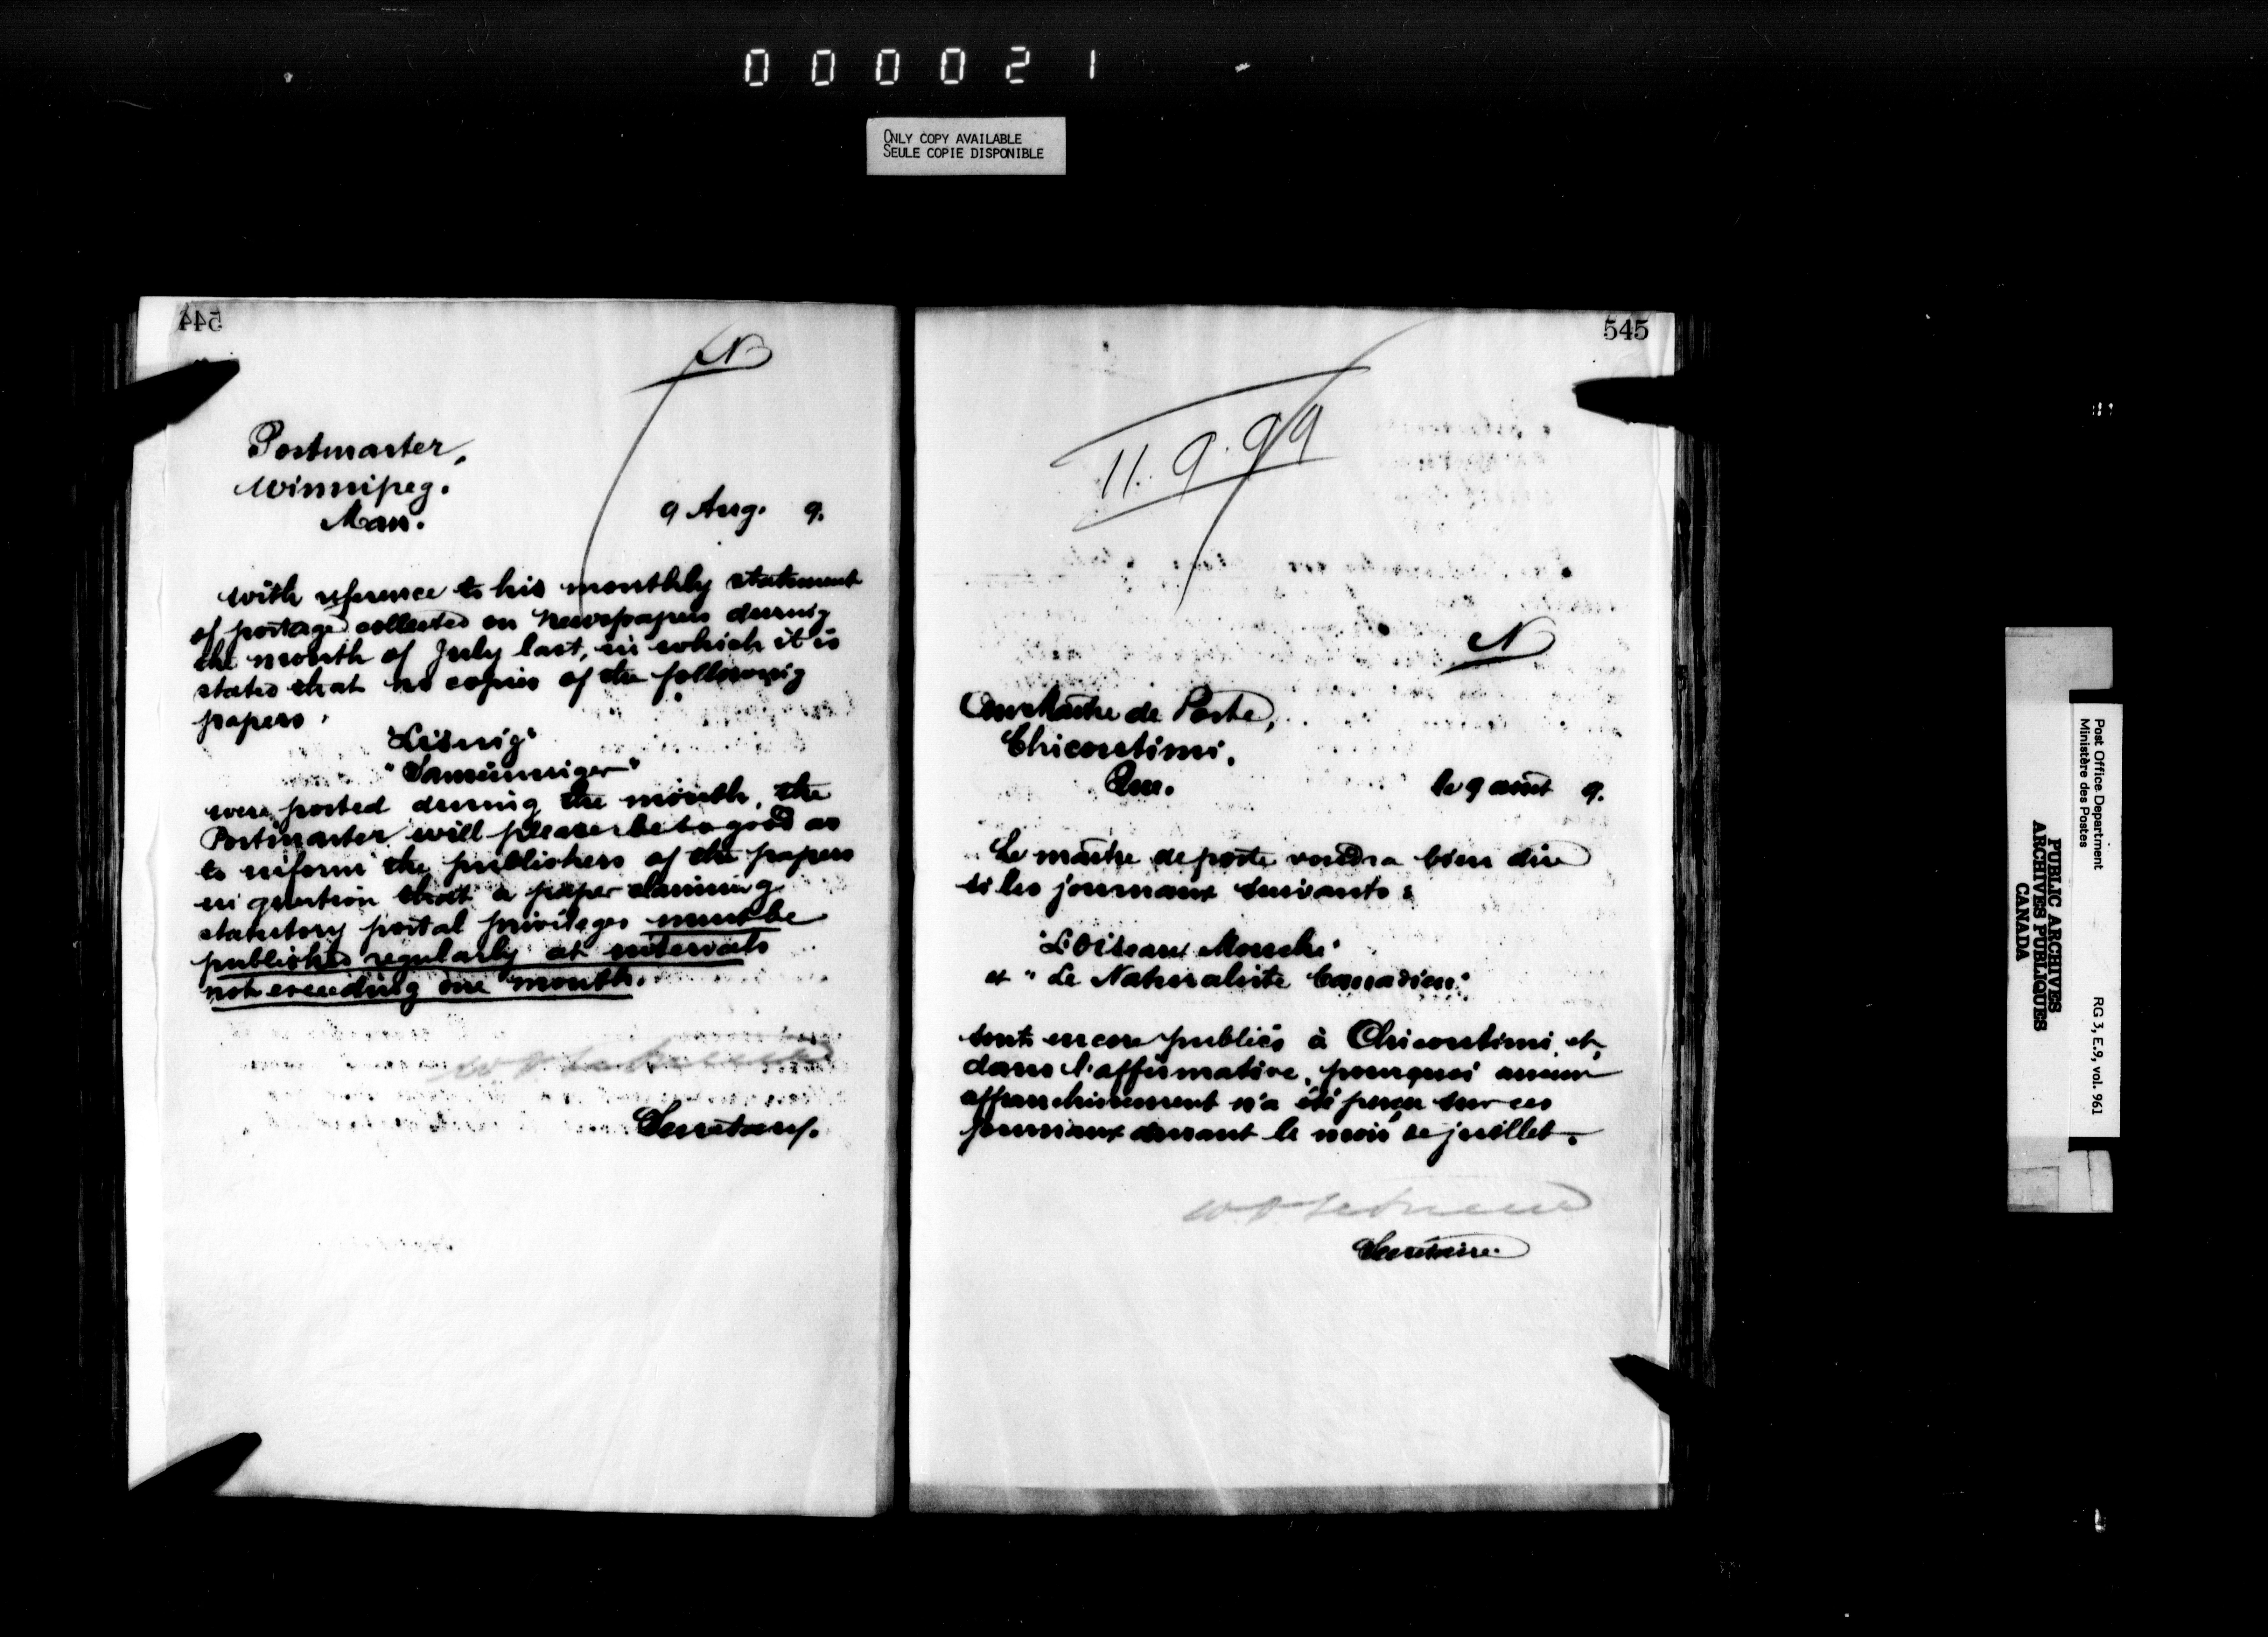 000021
ONLY COPY AVAILABLE
SEULE COPIE DISPONIBLE
544
N
Postmaster,
Winnipeg.
Man.
9 Aug. 9.
With reference to his monthly statement
of postage collected on Newspapers during
the month of July last, in which it is
stated that no copies of the following
papers,
were posted during the month, the
Postmaster will please be so good as
to inform the publishers of the papers
in question that a paper claiming
statutory postal privileges must be
published regularly at intervals
not exceeding one month.
Secretary.
545
11.9.99
N
Au Maître de Poste,
Chicoutimi,
Que.
le 9 août 9.
Le maître de poste voudra bien dire
si les journaux suivants:
"L'Oiseau Mouche"
et "Le Naturaliste Canadien"
sont encore publiés à Chicoutimi, et,
dans l'affirmative, pourquoi aucun
affranchissement n'a été perçu sur ces
journaux durant le mois de juillet.
Secrétaire.
Post Office Department
Ministère des Postes
RG 3, E.9, vol. 961
PUBLIC ARCHIVES
ARCHIVES PUBLIQUES
CANADA